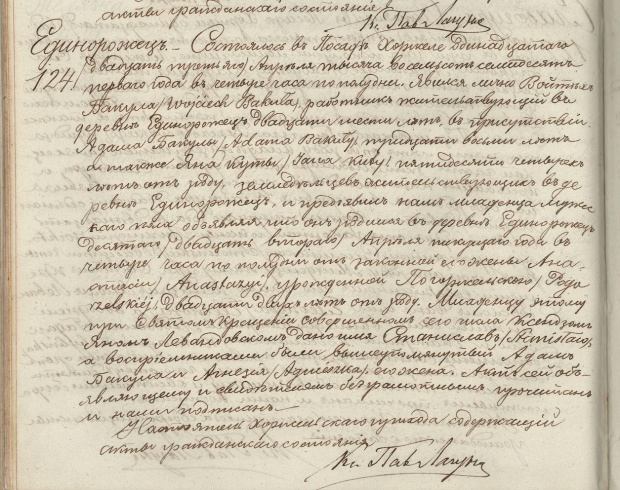 акты гражданскаго состоянія
Кс. Пав.
Единорожецъ. Состоялось въ Посадѣ Хоржеле Одинадцатаго
124
/двадцать третьяго/ Апрѣля тысяча восемьсотъ семьдесятъ
перваго года въ четыре часа по полудни. Явился лично Войтѣхъ
Бакула /Wojciech Bakuła/, работникъ жительствующій въ
деревнѣ Единорожецъ двадцати шести лѣтъ, въ присутствіи
Адама Бакулы /Adama Bakuły/ тридцати восьми лѣтъ
а также Яна Куты /Jana Kuty/ пятидесяти четырехъ
лѣтъ отъ роду, земледѣльцевъ жительствующихъ въ де
ревнѣ Единорожецъ, и предъявилъ намъ младенца мужес
каго пола объявляя что онъ родился въ деревнѣ Единорожец
десятаго /двадцать втораго/ Апрѣля текущаго года въ
четыре часа по полудни отъ законной его жены Ана
стасіи /Anastazyi/, урожденной Погоржельской /Pogo
rzelskiéj/ двадцати двухъ лѣтъ отъ роду. Младенцу этому
при Святомъ Крещеніи совершенномъ сего числа Ксендзомъ
Яномъ Левандовскомъ дано имя Станиславъ /Stanisław/,
а воспріемниками были вышеупомянутый Адамъ
Бакула и Агнеція /Agnieszka/ его жена. Актъ сей объ
являющему и свидѣтелямъ безграмотнымъ прочитанъ
и нами подписанъ.
Настоятель Хоржельскаго прихода содержащій
акты гражданскаго состоянія
Кс. Пав.